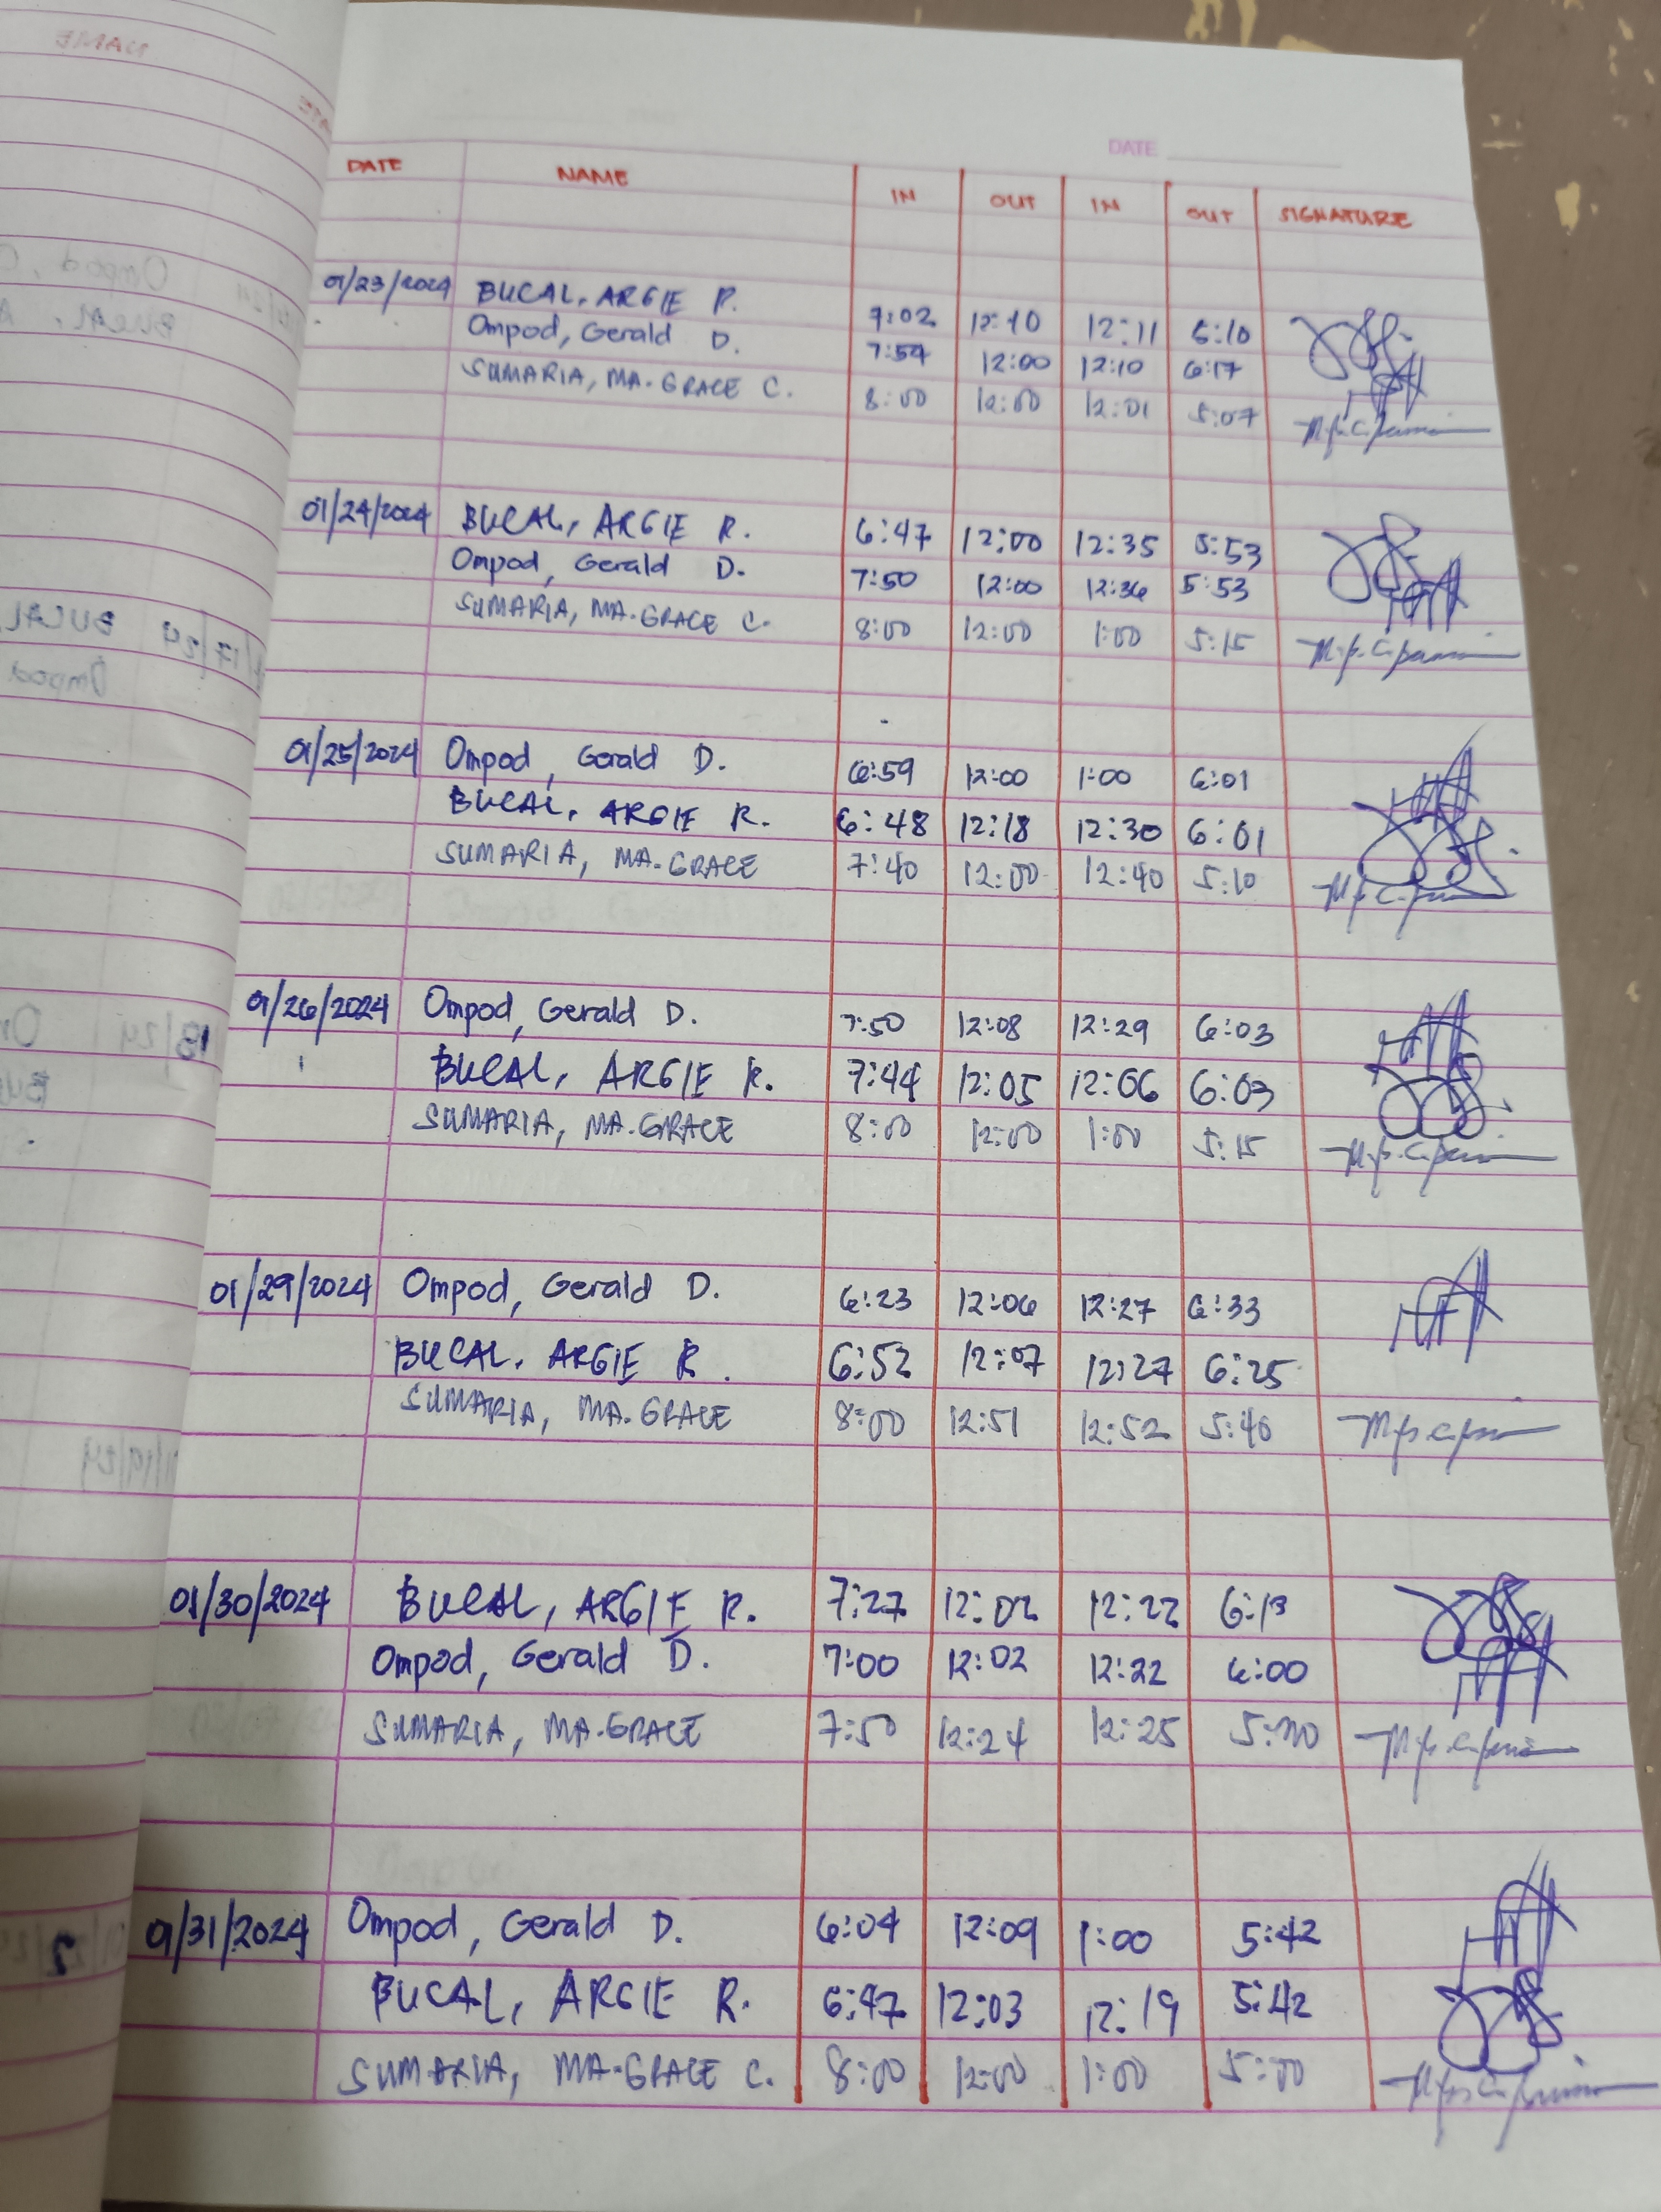 DATE
DATE NAME IN OUT IN OUT SIGNATURE
01/23/2024 BUCAL, ARGIE R. 7:02 12:10 12:11 6:10
Ompod, Gerald D. 7:54 12:00 12:10 6:17
SUMARIA, MA. GRACE C. 8:00 12:00 12:01 5:07
01/24/2024 BUCAL, ARGIE R. 6:47 12:00 12:35 5:53
Ompod, Gerald D. 7:50 12:00 12:36 5:53
SUMARIA, MA. GRACE C. 8:00 12:00 1:00 5:15
01/25/2024 Ompod, Gerald D. 6:59 12:00 1:00 6:01
BUCAL, ARGIE R. 6:48 12:18 12:30 6:01
SUMARIA, MA. GRACE 7:40 12:00 12:40 5:10
01/26/2024 Ompod, Gerald D. 7:50 12:08 12:29 6:03
BUCAL, ARGIE R. 7:44 12:05 12:06 6:03
SUMARIA, MA. GRACE 8:00 12:00 1:00 5:15
01/29/2024 Ompod, Gerald D. 6:23 12:06 12:27 6:33
BUCAL, ARGIE R. 6:52 12:07 12:27 6:25
SUMARIA, MA. GRACE 8:00 12:51 12:52 5:40
01/30/2024 BUCAL, ARGIE R. 7:27 12:02 12:22 6:13
Ompod, Gerald D. 7:00 12:02 12:22 6:00
SUMARIA, MA. GRACE 7:50 12:24 12:25
01/31/2024 Ompod, Gerald D. 6:04 12:09 1:00 5:42
BUCAL, ARGIE R. 6:47 12:03 12:19 5:42
SUMARIA, MA. GRACE C. 8:00 12:00 1:00 5:00